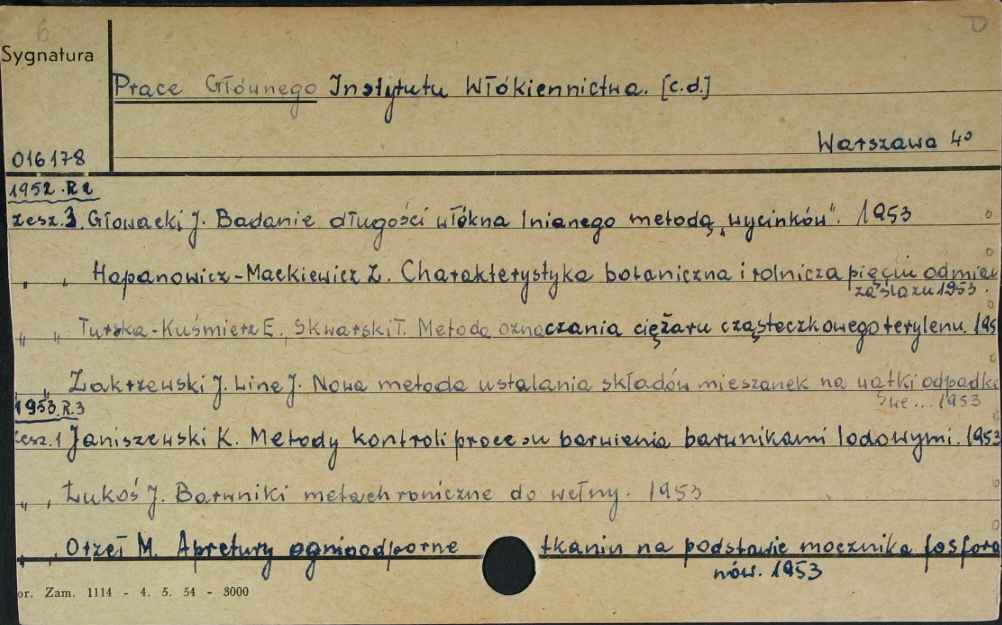 6
Sygnatura
Prace Głównego Instytutu Włókiennictwa. [c.d.]
Warszawa 4°
016178
1952.R.2
zesz.3. Głowacki J. Badanie długości włókna lnianego metodą „wycinków". 1953
„ „ Hapanowicz-Mackiewicz Z. Charakterystyka botaniczna i rolnicza pięciu odmian
zaślazu 1953.
„ „ Turska-Kuśmierz E., Skwarski T. Metoda oznaczania ciężaru cząsteczkowego terylenu. 195
„ „ Zakrzewski J. Line J. Nowa metoda ustalania składów mieszanek na watki odpadko
we... 1953
1953.R.3
zesz.1 Janiszewski K. Metody kontroli procesu barwienia barwnikami lodowymi. 1953
„ „ Łukoś J. Barwniki metachroniczne do wełny. 1953
„ „ Orzeł M. Apretury ognioodporne tkanin na podstawie mocznika fosfora
nów. 1953
or. Zam. 1114 - 4. 5. 54 - 3000